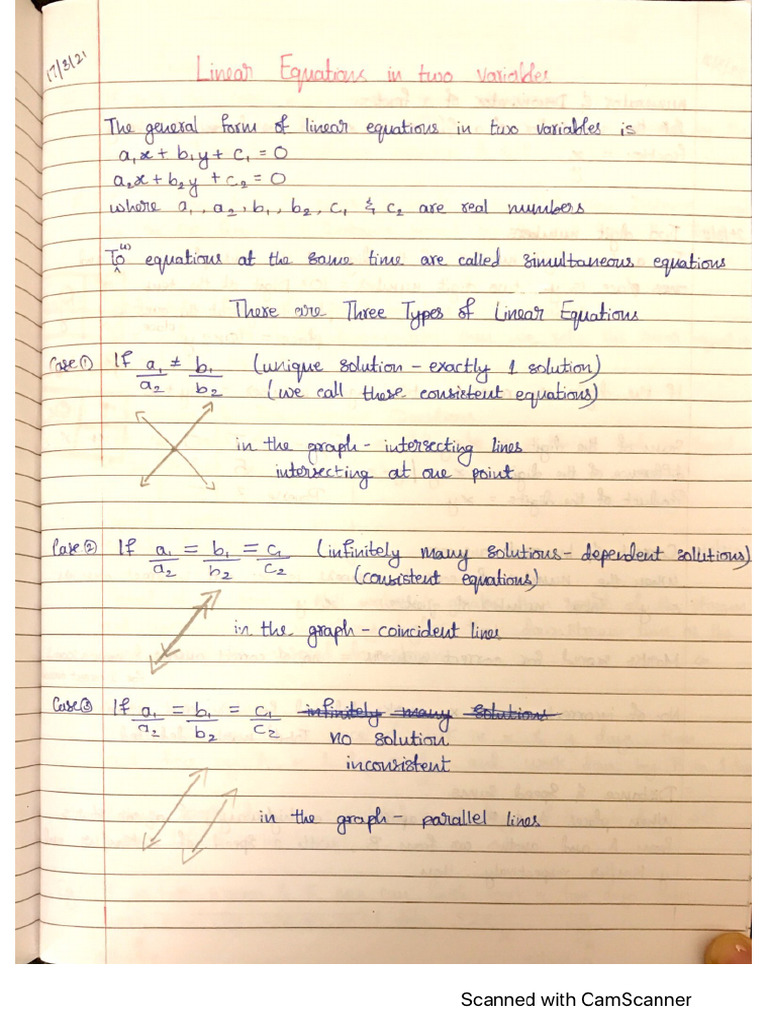 17/3/21
Linear Equations in two variables
The general form of linear equations in two variables is
a₁x + b₁y + c₁ = 0
a₂x + b₂y + c₂ = 0
where a₁, a₂, b₁, b₂, c₁ & c₂ are real numbers
equations at the same time are called simultaneous equations
There are Three Types of Linear Equations
Case ① If a₁/a₂ ≠ b₁/b₂ (unique solution - exactly 1 solution)
(we call these consistent equations)
in the graph - intersecting lines
intersecting at one point
Case ② If a₁/a₂ = b₁/b₂ = c₁/c₂ (infinitely many solutions - dependent solutions)
(consistent equations)
in the graph - coincident lines
Case ③ If a₁/a₂ = b₁/b₂ = c₁/c₂ infinitely many solutions
no solution
inconsistent
in the graph - parallel lines
Scanned with CamScanner